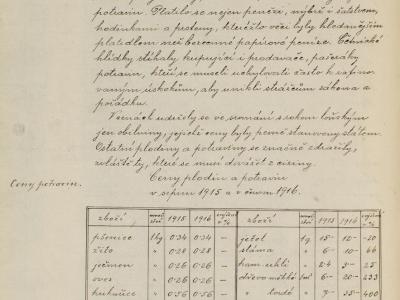 potravin. Platilo se nejen penězi, nýbrž i šatstvem,
hodinkami a prsteny, kteréžto věci byly hledanějším
platidlem než bezcenné papírové peníze. Četnické
hlídky stíhaly kupující i prodavače, pašeráky
potravin, kteří se museli uchylovati často k rafino-
vaným úskokům, aby unikli strážcům zákona a
pořádku.
V cenách udržely se ve srovnání s rokem loňským
jen obilniny, jejichž ceny byly pevně stanoveny státem.
Ostatní plodiny a potraviny se značně zdražily,
zvláště ty, které se musí dovážet z ciziny.
Ceny potravin.
Ceny plodin a potravin
v srpnu 1915 a v únoru 1916.
zboží 1915 1916 v % zboží 1915 1916 v %
pšenice 1 kg 0·34 0·34 — jetel q 15- 12- -20
žito " 0·28 0·28 — sláma " 6- 10- 66
ječmen " 0·26 0·26 — kam. uhlí " 2·4 3- 25
oves " 0·26 0·26 — dříví měkké 6- 20- 233
kukuřice " 0·56 0·56 — " tvrdé " 7- 35- 400